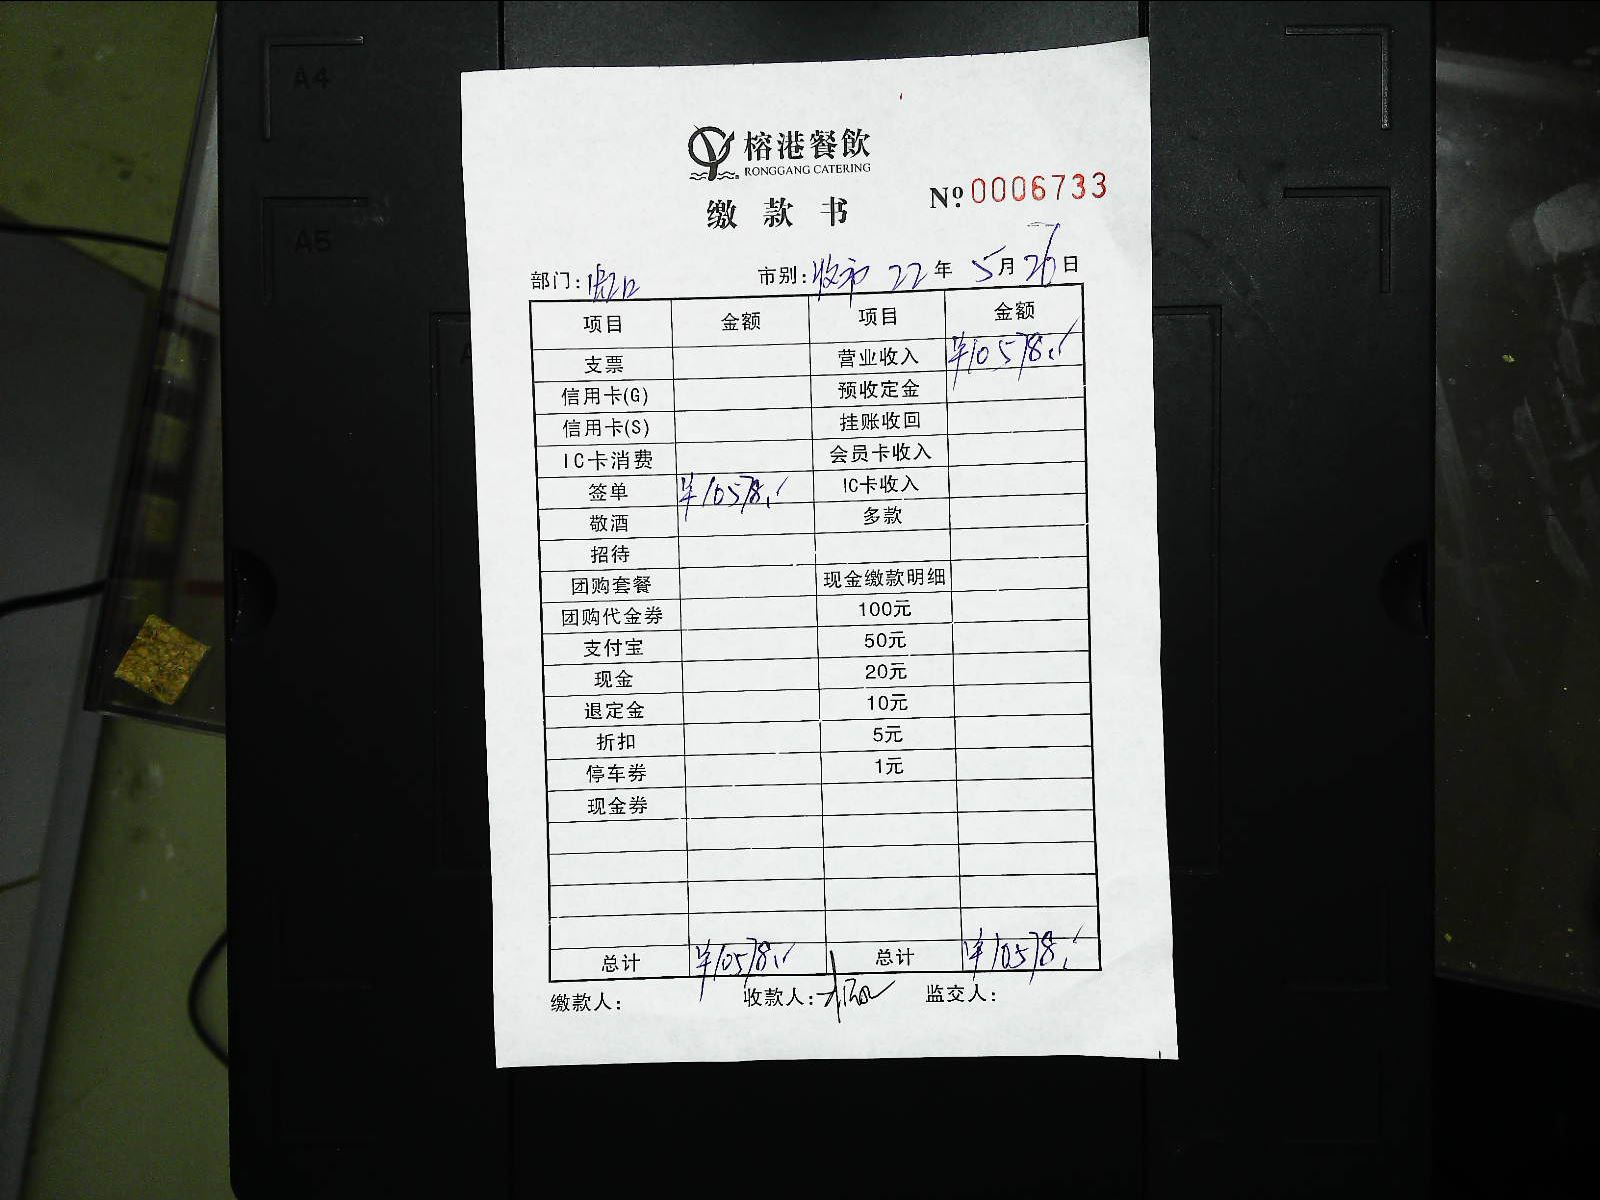 A4
A5
榕港餐飲
RONGGANG CATERING
缴款书
Nº 0006733
部门: 市别: 收市 22年 5月26日
项目 金额 项目 金额
支票 营业收入 ¥10578.
信用卡(G) 预收定金
信用卡(S) 挂账收回
IC卡消费 会员卡收入
签单 ¥10578. IC卡收入
敬酒 多款
招待
团购套餐 现金缴款明细
团购代金券 100元
支付宝 50元
现金 20元
退定金 10元
折扣 5元
停车券 1元
现金券
总计 ¥10578. 总计 ¥10578.
缴款人: 收款人: 监交人: